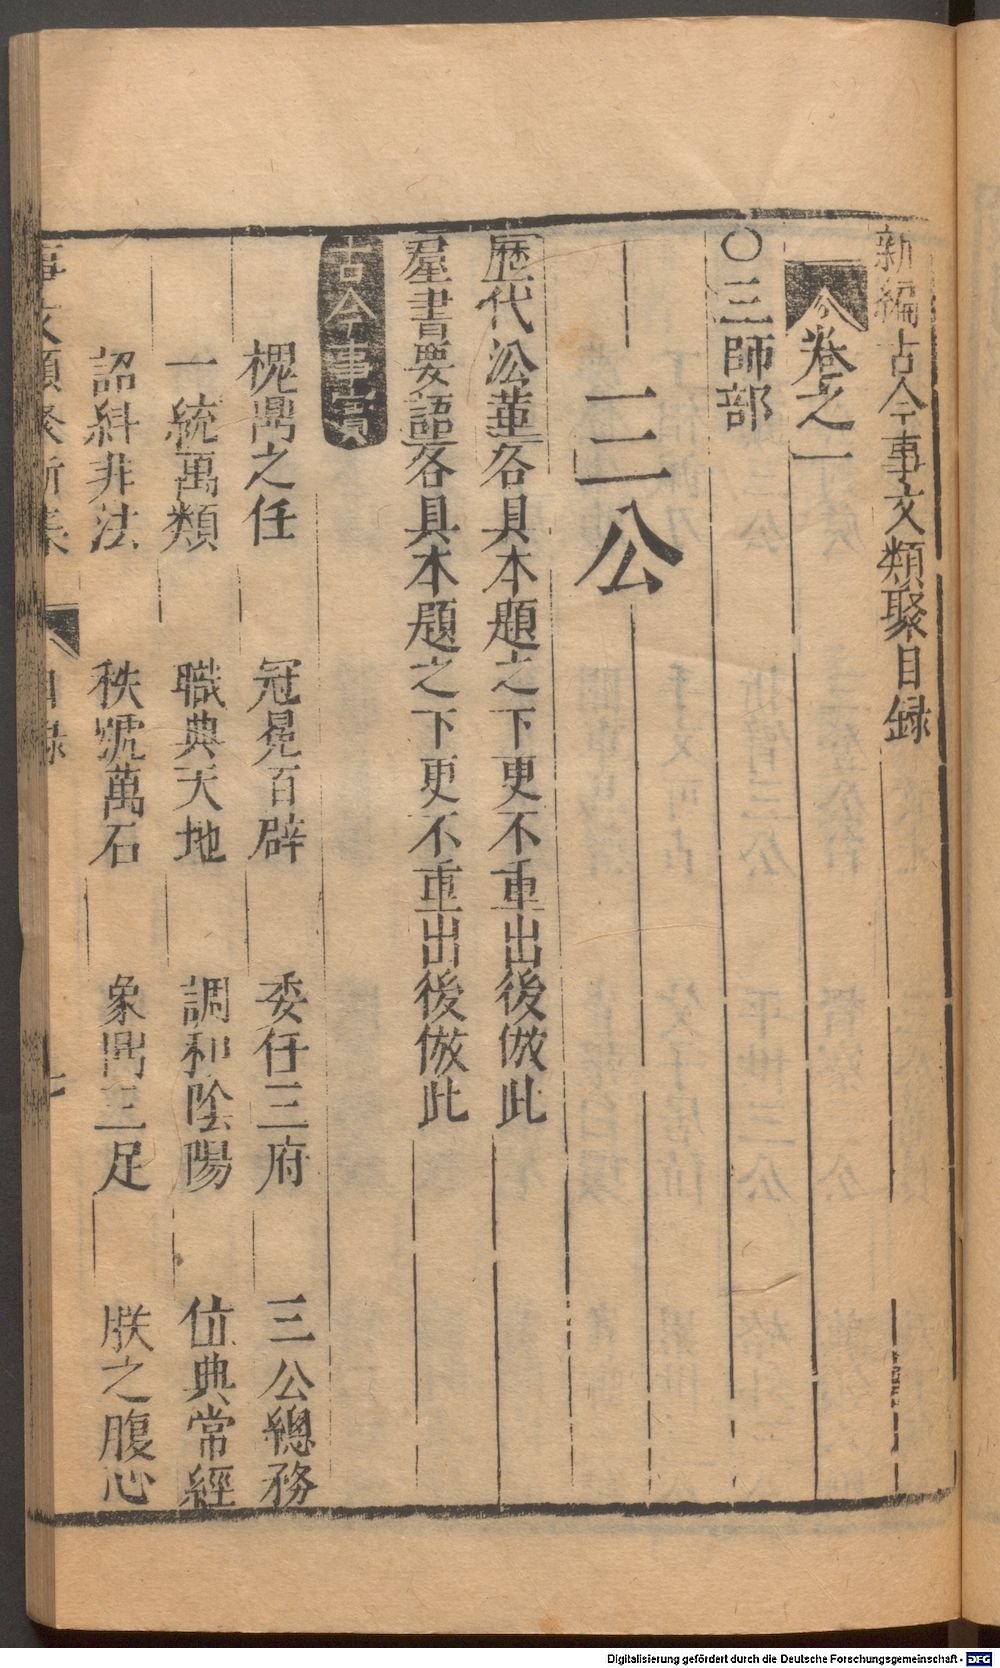 新編古今事文類聚目録
卷之一
○三師部
三公
歷代沿革各具本題之下更不重出後倣此
羣書要語各具本題之下更不重出後倣此
古今事實
槐鼎之任 冠冕百辟 委任三府 三公總務
一統萬類 職典天地 調和陰陽 位典常經
詔糾非法 秩號萬石 象鼎三足 朕之腹心
事文類聚新集 目録 七
Digitalisierung gefördert durch die Deutsche Forschungsgemeinschaft - DFG